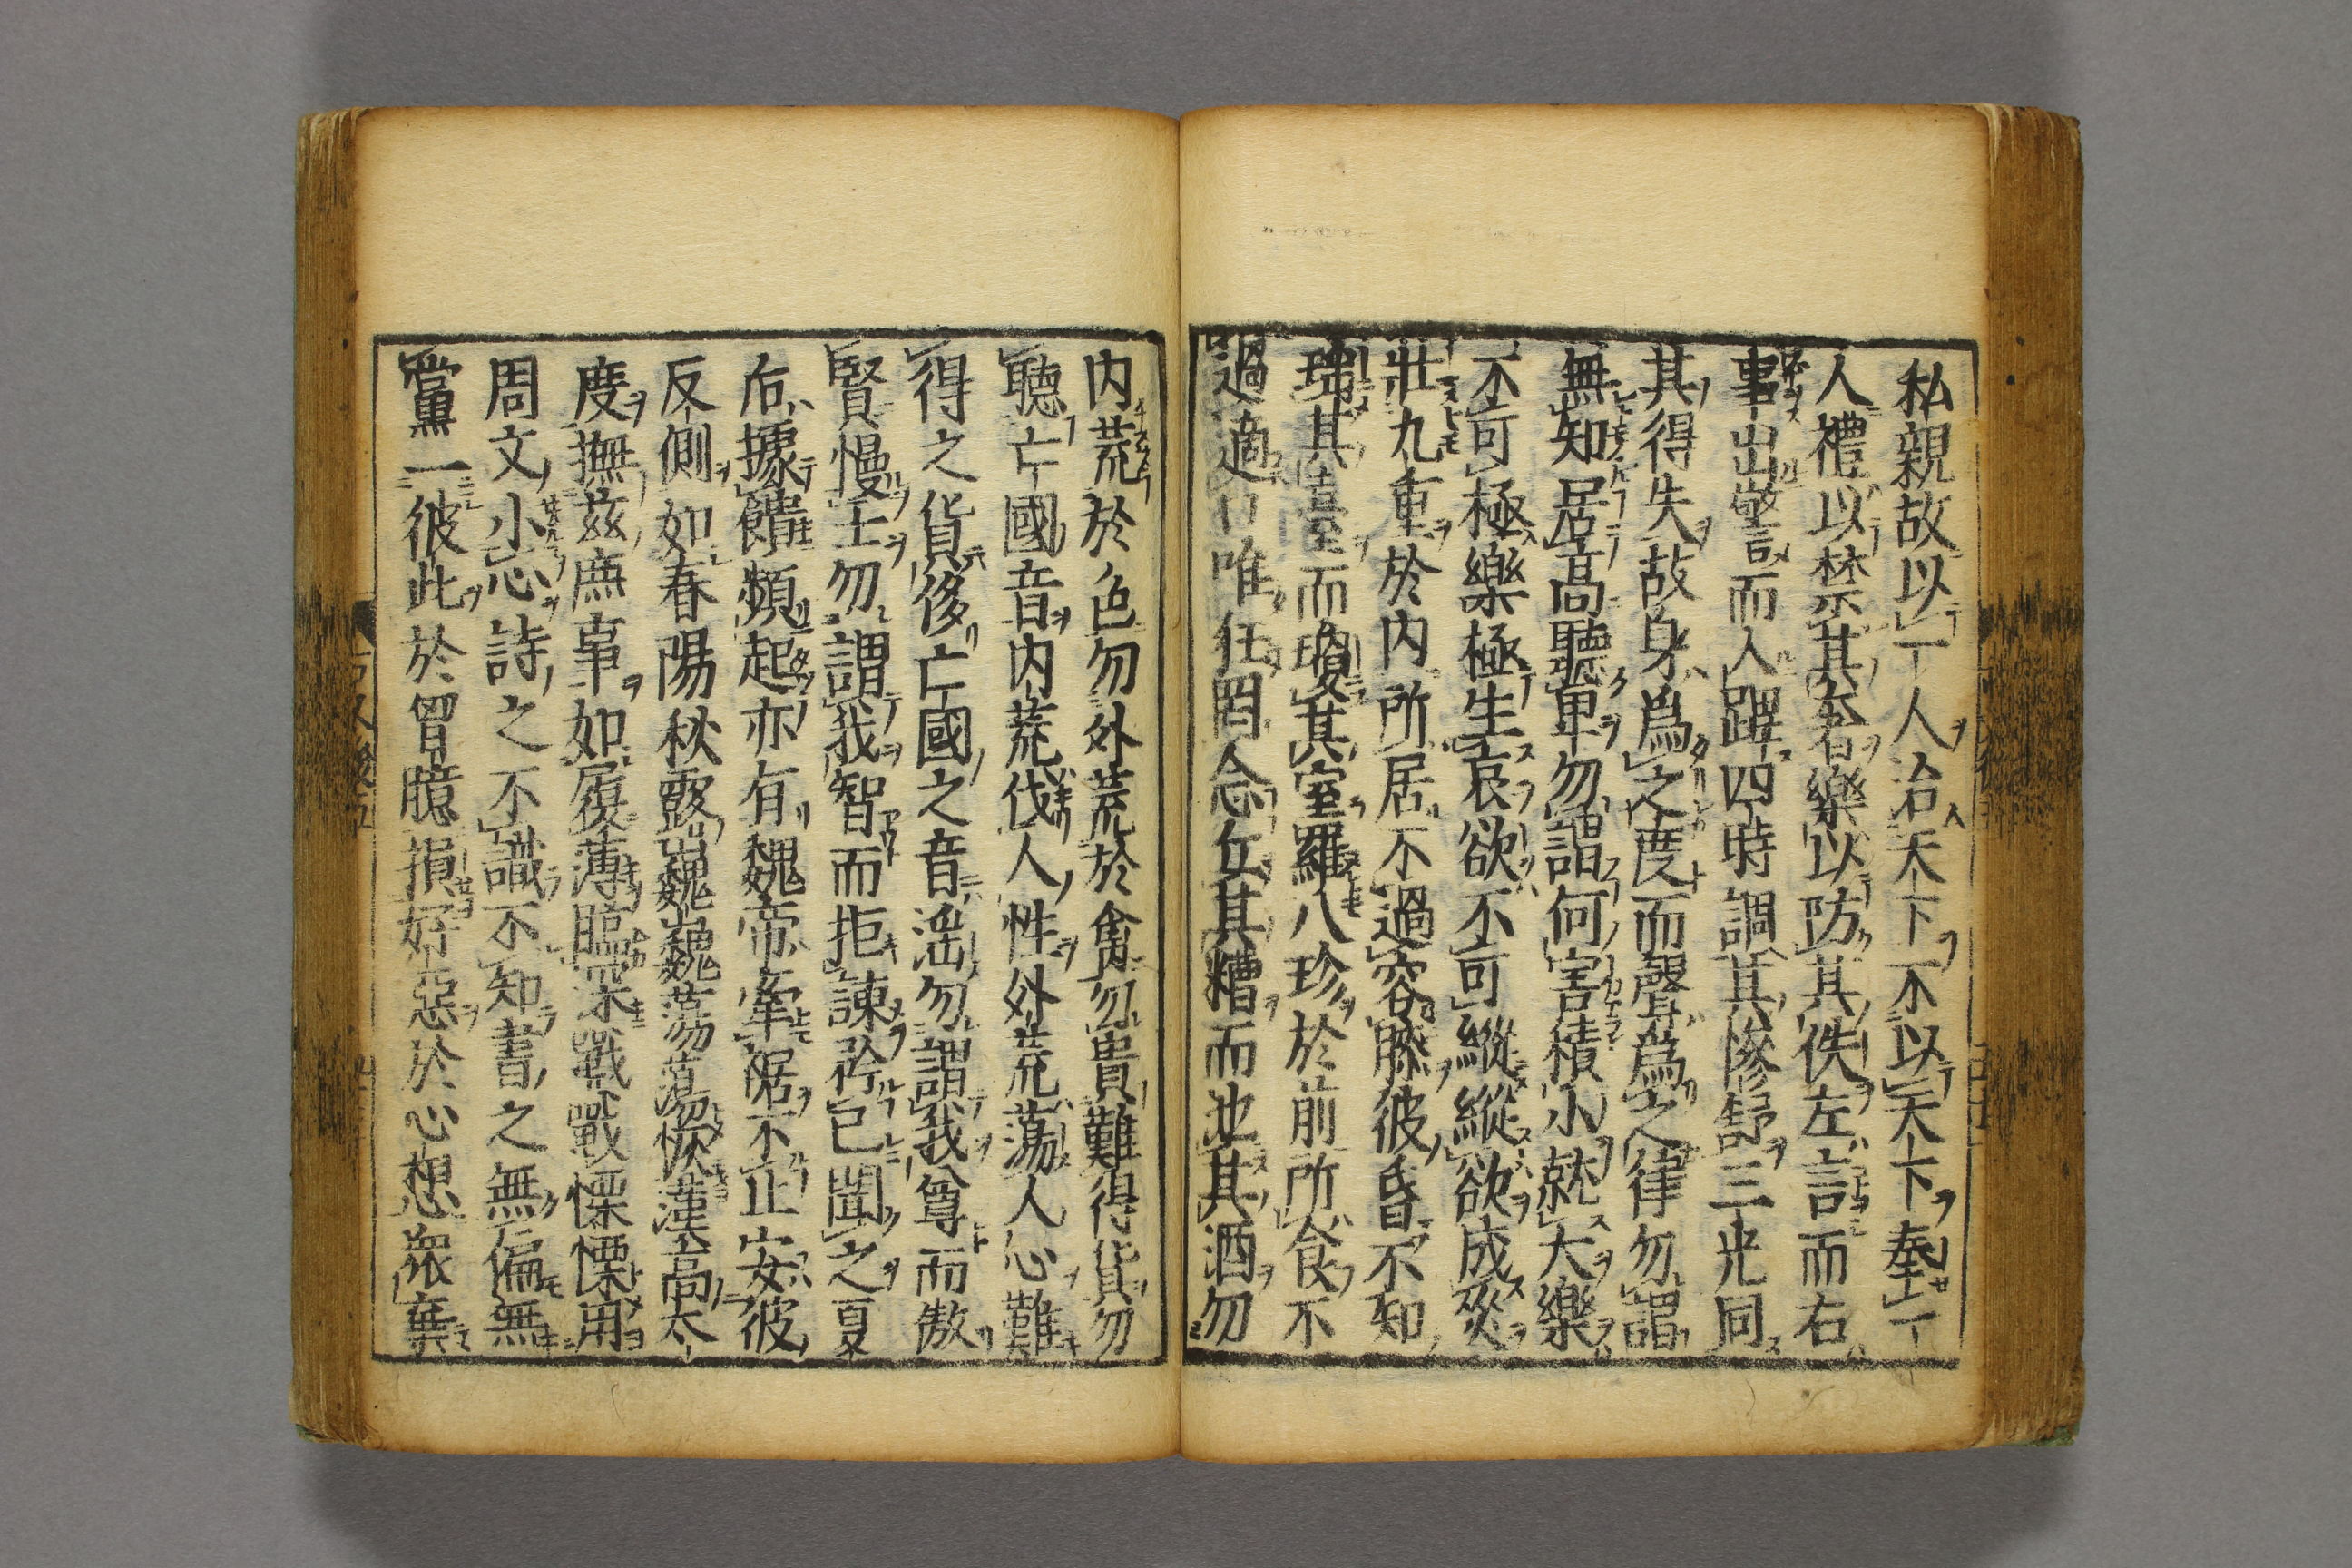 私親故以一人治天下不以天下奉一
人禮以禁其奢樂以防其佚左言而右
事出警而入蹕四時調其慘舒三光同
其得失故身爲之度而聲爲之律勿謂
無知居高聽卑勿謂何害積小就大樂
不可極樂極生哀欲不可縱縱欲成災
壯九重於内所居不過容膝彼昏不知
瑤其臺而瓊其室羅八珍於前所食不
過適口唯狂罔念丘其糟而池其酒勿
内荒於色勿外荒於禽勿貴難得貨勿
聽亡國音内荒伐人性外荒蕩人心難
得之貨侈亡國之音淫勿謂我尊而傲
賢慢士勿謂我智而拒諫矜己聞之夏
后據饋頻起亦有魏帝牽裾不止安彼
反側如春陽秋露巍巍蕩蕩恢漢高太
度撫茲庶事如履薄臨深戰戰慄慄用
周文小心詩之不識不知書之無偏無
黨一彼此於胷臆損好惡於心想衆棄